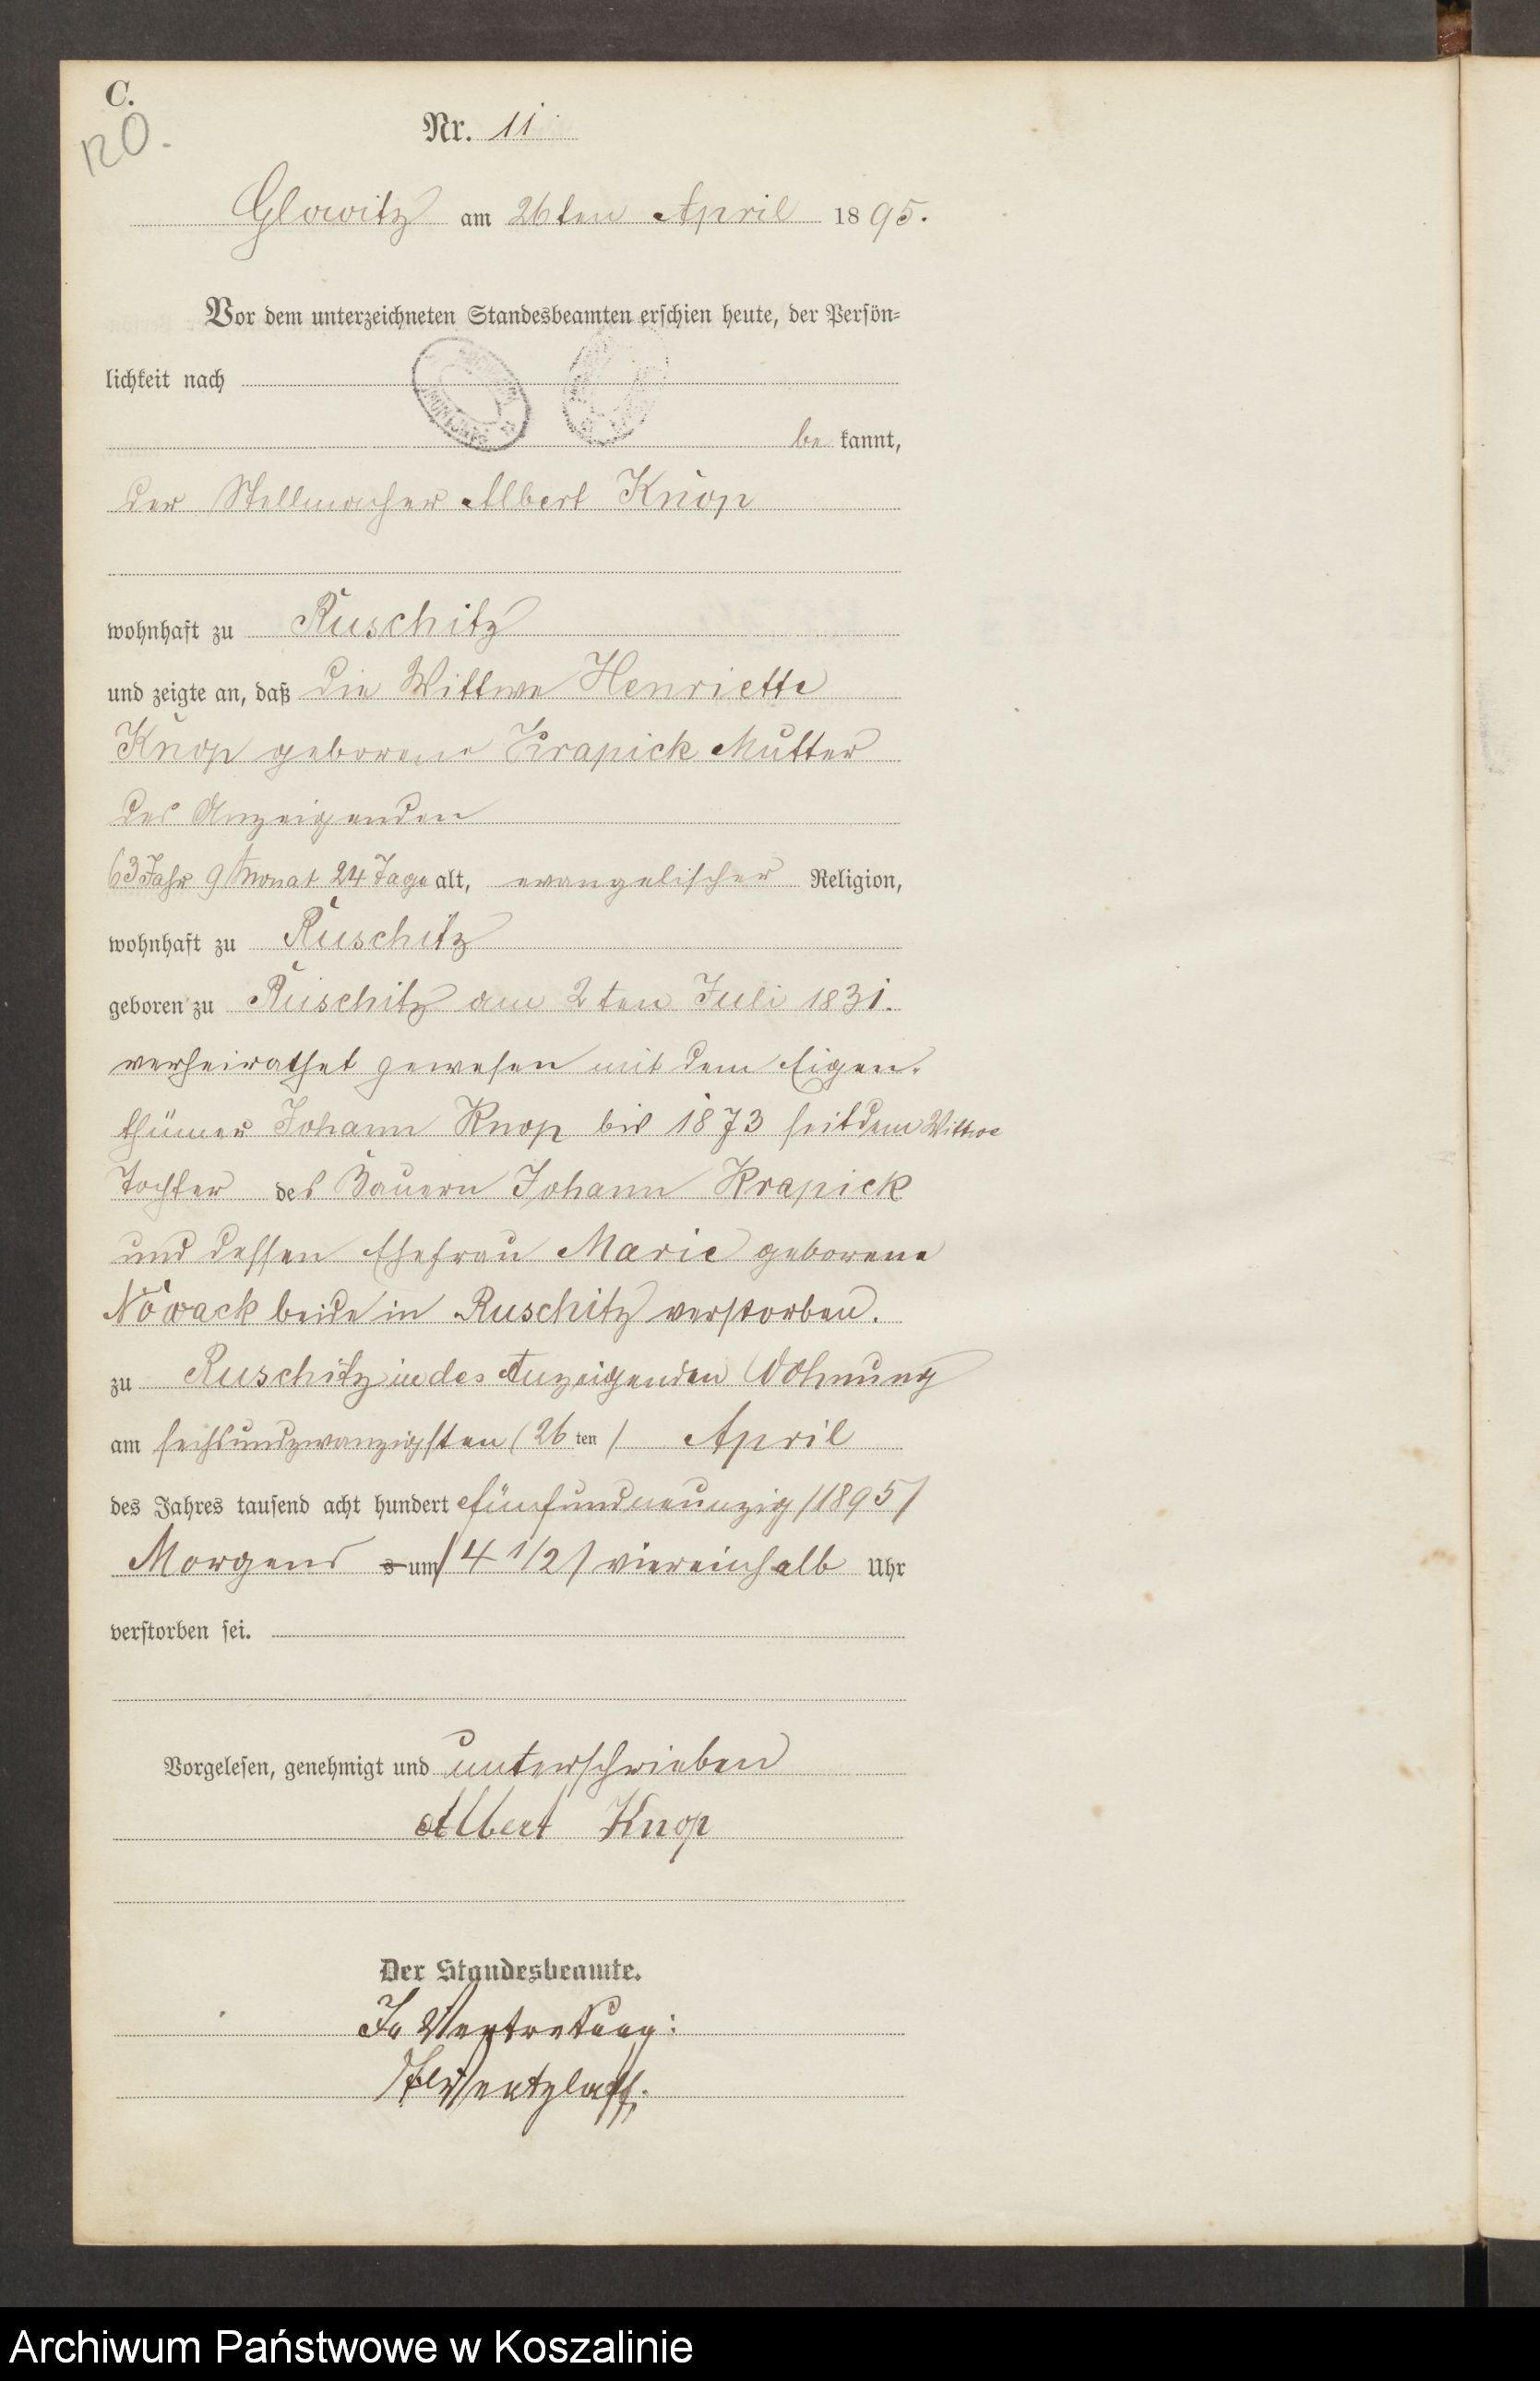 C.
120.
Nr. 11
Glowitz am 26ten April 1895.
Vor dem unterzeichneten Standesbeamten erschien heute, der Persön-
lichkeit nach
be kannt,
der Stellmacher Albert Knop
wohnhaft zu Ruschitz
und zeigte an, daß die Wittwe Henriette
Knop geborene Krapick Mutter
des Anzeigenden
63 Jahr 9 Monat 24 Tage alt, evangelischer Religion,
wohnhaft zu Ruschitz
geboren zu Ruschitz am 2ten Juli 1831.
verheirathet gewesen mit dem Eigen-
thümer Johann Knop bis 1873 seitdem Wittwe
Tochter des Bauern Johann Krapick
und dessen Ehefrau Marie geborene
Nowack beide in Ruschitz verstorben.
zu Ruschitz in des Anzeigenden Wohnung
am sechsundzwanzigsten (26 ten) April
des Jahres tausend acht hundert fünfundneunzig /1895/
Morgens s um /4 1/2/ viereinhalb Uhr
verstorben sei.
Vorgelesen, genehmigt und unterschrieben
Albert Knop
Der Standesbeamte.
In Vertretung:
Archiwum Państwowe w Koszalinie